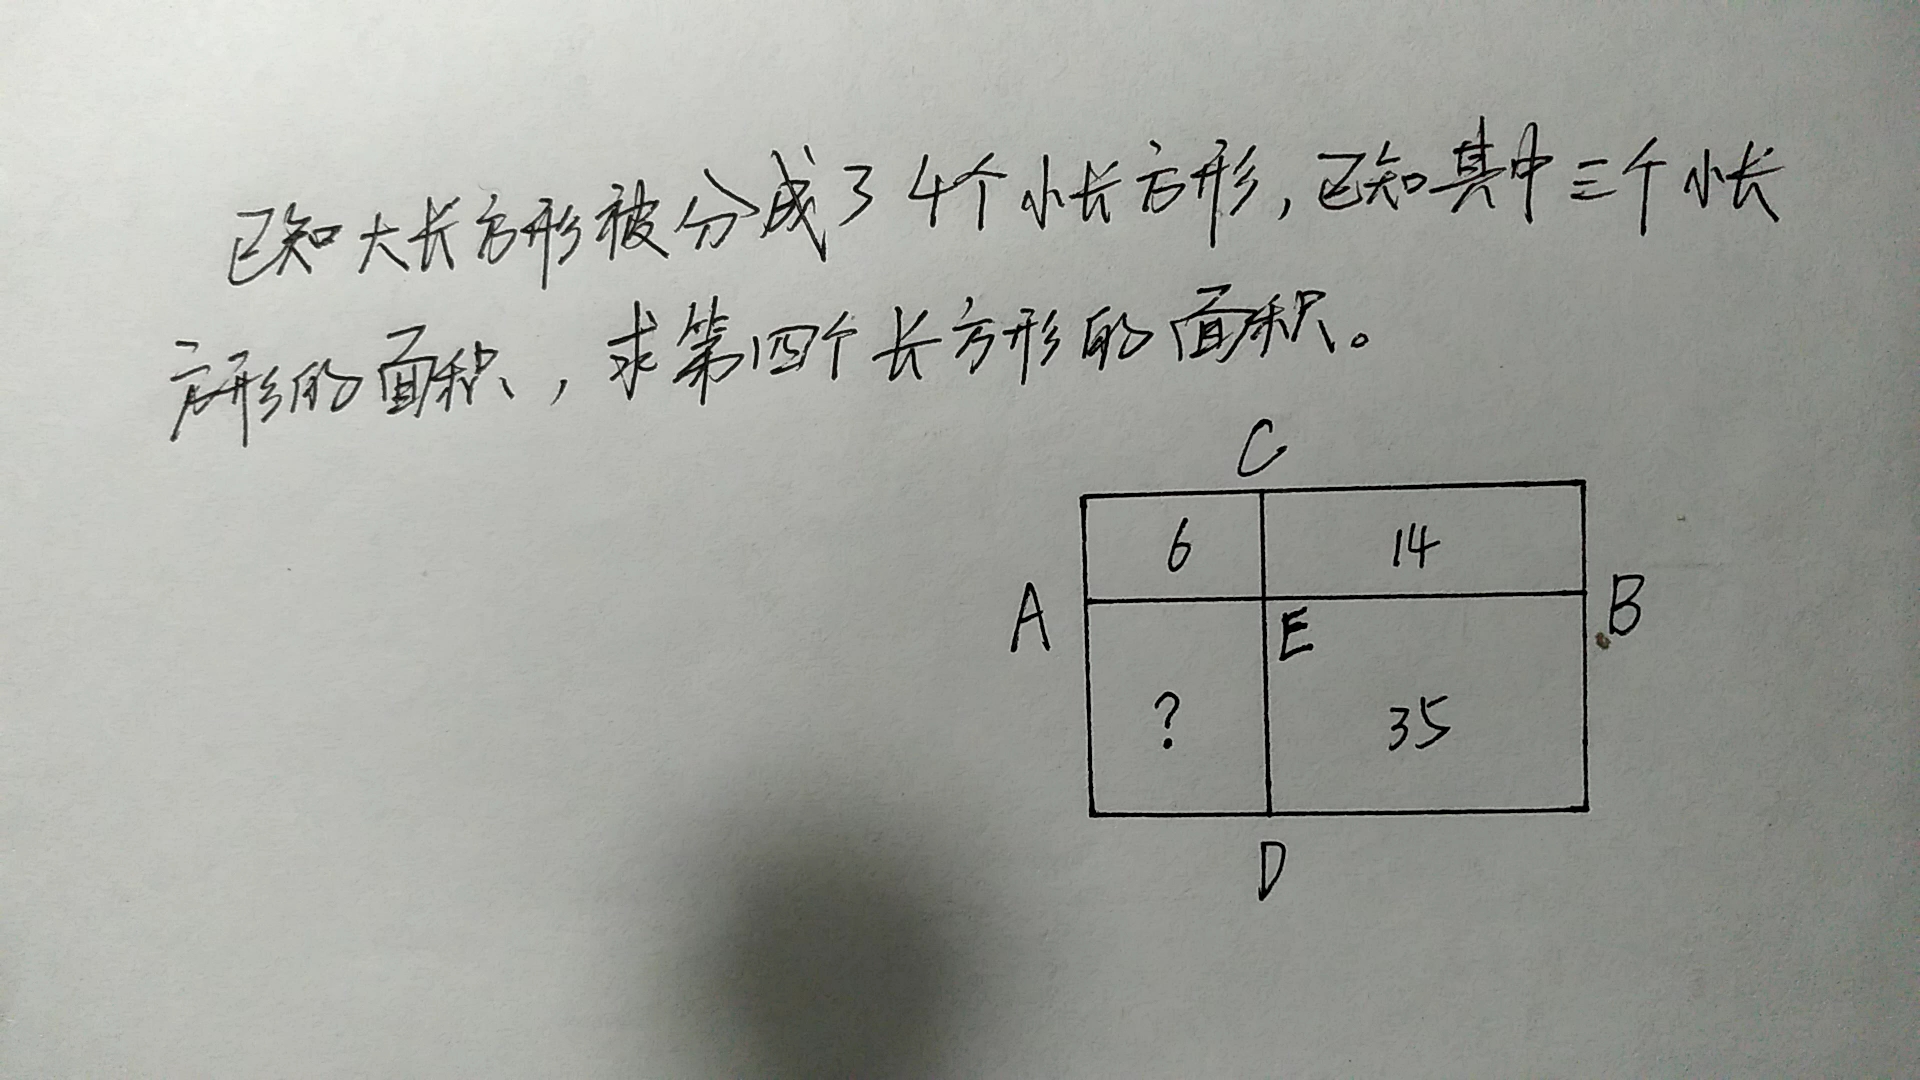 已知大长方形被分成了4个小长方形,已知其中三个小长
方形的面积,求第四个长方形的面积。
C
6 14
A E B
? 35
D